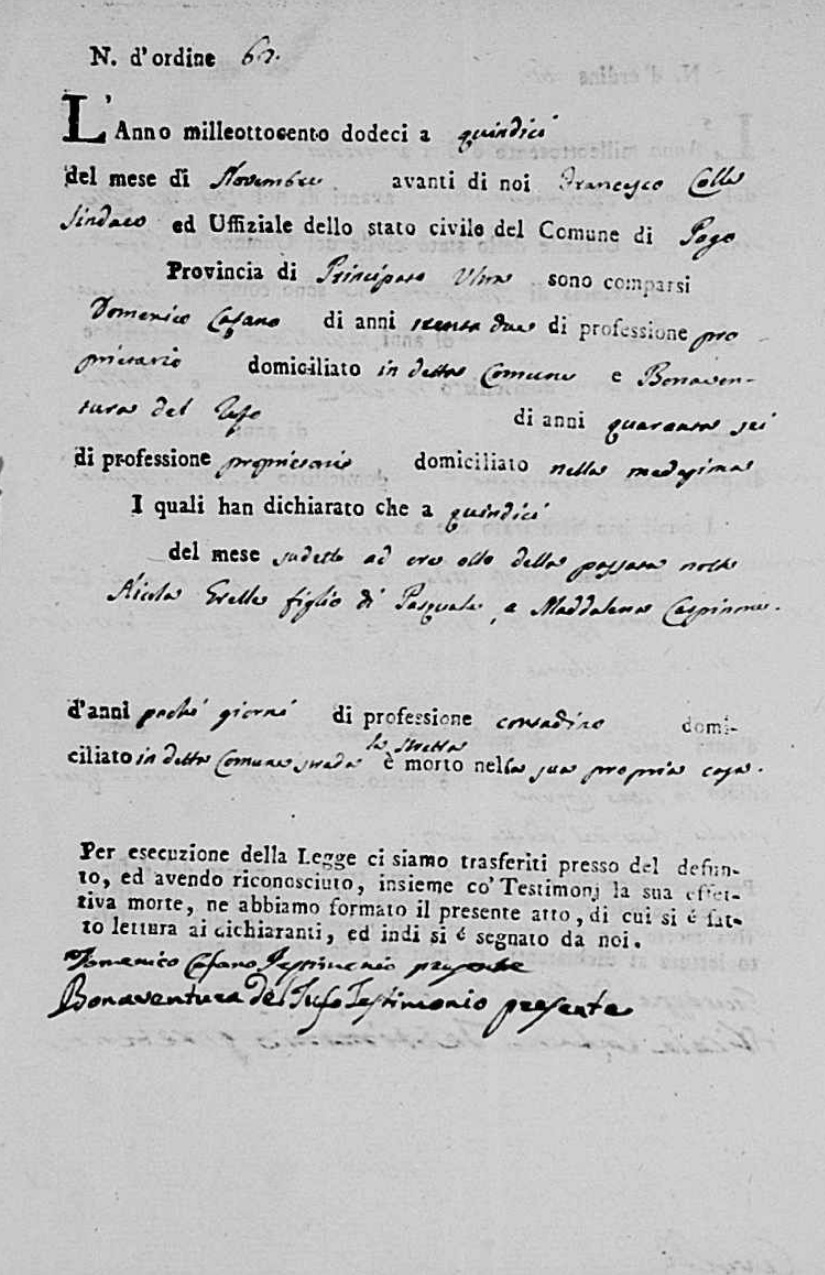 N. d'ordine 62.
L'Anno milleottocento dodeci a quindici
del mese di Novembre avanti di noi Francesco Colla
Sindaco ed Uffiziale dello stato civile del Comune di Pago
Provincia di Principato Ultra sono comparsi
Domenico Cafano di anni trenta due di professione pro
prietario domiciliato in detta Comune e Bonaven-
tura del Tufo di anni quaranta sei
di professione proprietario domiciliato nella medesima
I quali han dichiarato che a quindici
del mese sudetto ad ore otto della passata notte
Nicola figlio di Pasquale, e Maddalena
d'anni pochi giorni di professione contadino domi-
ciliato in detta Comune strada la stretta è morto nella sua propria casa.
Per esecuzione della Legge ci siamo trasferiti presso del defun-
to, ed avendo riconosciuto, insieme co' Testimonj la sua effet-
tiva morte, ne abbiamo formato il presente atto, di cui si é fat-
to lettura ai dichiaranti, ed indi si é segnato da noi.
Domenico Cafano Testimonio presente
Bonaventura del Tufo Testimonio presente